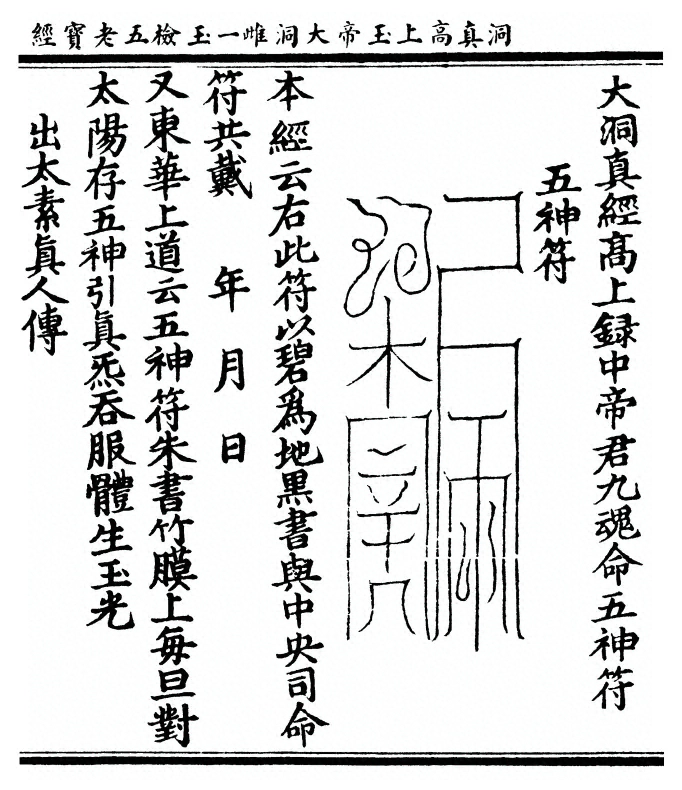 洞真高上玉帝大洞雌一玉檢五老寶經
大洞真經高上録中帝君九魂命五神符
五神符
本經云右此符以碧爲地黒書與中央司命
符共戴　年　月　日
又東華上道云五神符朱書竹膜上每旦對
太陽存五神引真炁吞服體生玉光
出太素真人傳